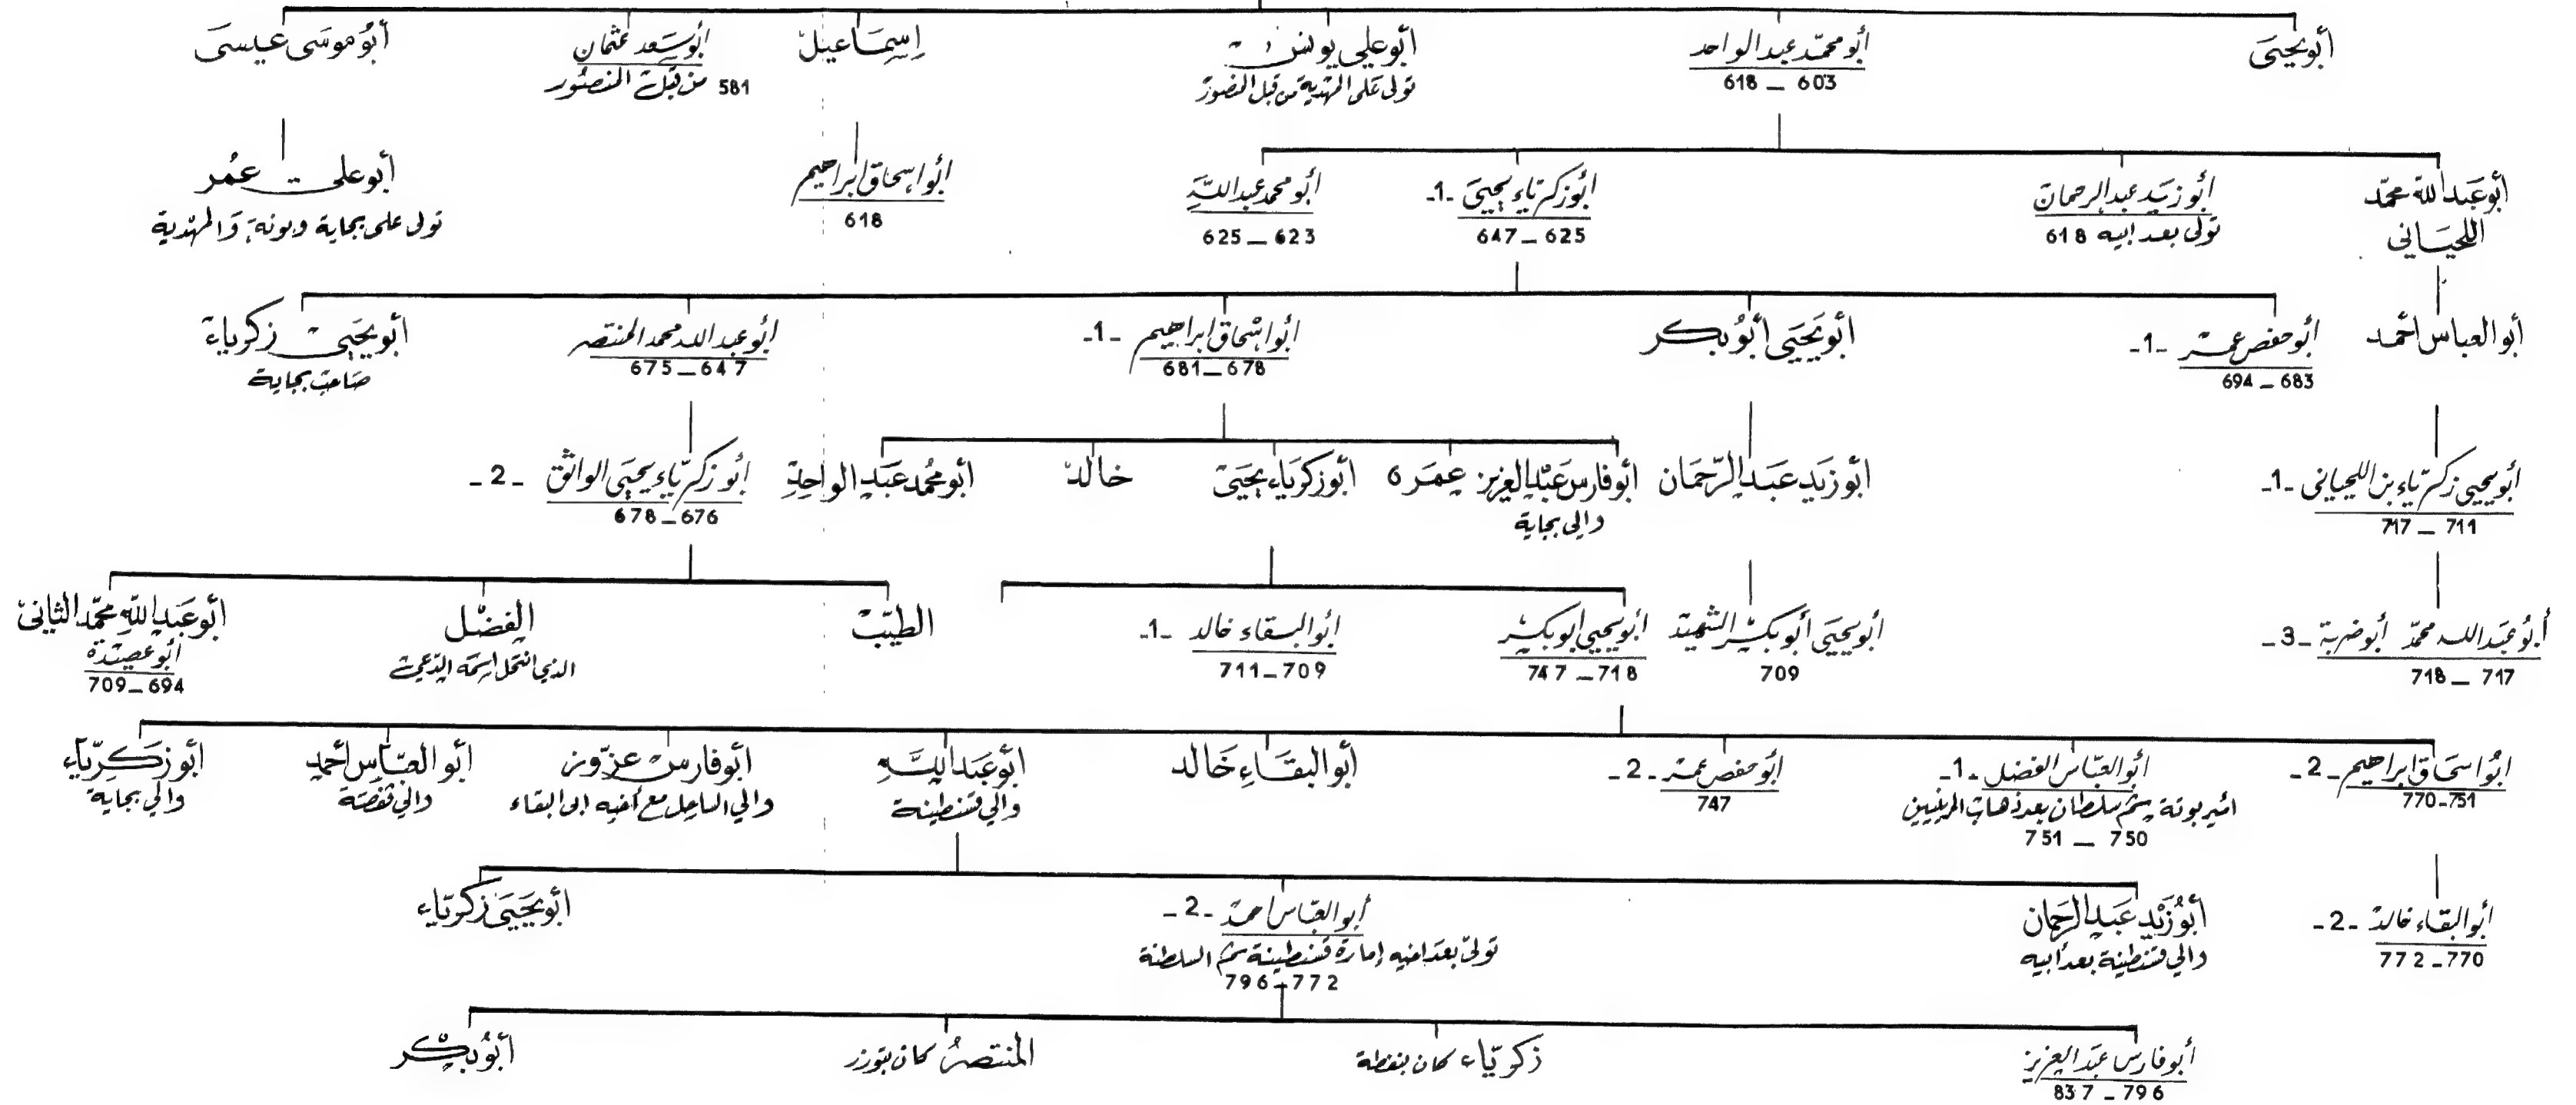 أبو يحيى
أبو محمد عبد الواحد
618 _ 603
أبو علي يونس
تولى على المهدية من قبل المنصور
إسماعيل
أبو سعد عثمان
581 من قبل المنصور
أبو موسى عيسى
أبو عبد الله محمد
اللحياني
أبو زيد عبد الرحمان
تولى بعد ابيه 618
أبو زكرياء يحيى -1-
647 _ 625
أبو محمد عبد الله
625 _ 623
أبو اسحاق ابراهيم
618
أبو علي عمر
تولى على بجاية وبونة والمهدية
أبو العباس أحمد
أبو حفص عمر -1-
694 _ 683
أبو يحيى أبو بكر
أبو اسحاق ابراهيم -1-
681 _ 678
أبو عبد الله محمد المنتصر
675 _ 647
أبو يحيى زكرياء
صاحب بجاية
أبو يحيى زكرياء بن اللحياني -1-
717 _ 711
أبو زيد عبد الرحمان
أبو فارس عبد العزيز عمر 6
والي بجاية
أبو زكرياء يحيى
خالد
أبو محمد عبد الواحد
أبو زكرياء يحيى الواثق -2-
678 _ 676
أبو عبد الله محمد أبو ضربة -3-
718 _ 717
أبو يحيى أبو بكر الشهيد
709
أبو يحيى ابو بكر
747 _ 718
أبو البقاء خالد -1-
711 _ 709
الطيب
الفضل
الذي انتحل اسمه الدعي
أبو عبد الله محمد الثاني
أبو عصيدة
709 _ 694
ابو اسحاق ابراهيم -2-
770 - 751
أبو العباس الفضل -1-
امير بونة ثم سلطان بعد ذهاب المرينيين
751 _ 750
أبو حفص عمر -2-
747
أبو البقاء خالد
أبو عبد الله
والي قسنطينة
أبو فارس عزوز
والي الساحل مع أخيه ابى البقاء
أبو العباس أحمد
والي قفصة
أبو زكرياء
والي بجاية
أبو البقاء خالد -2-
772 _ 770
أبو زيد عبد الرحمان
والي قسنطينة بعد أبيه
أبو العباس احمد -2-
تولى بعد اخيه إمارة قسنطينة ثم السلطنة
796 _ 772
أبو يحيى زكرياء
أبو فارس عبد العزيز
837 _ 796
زكرياء كان بنفطة
المنتصر كان بتوزر
أبو بكر